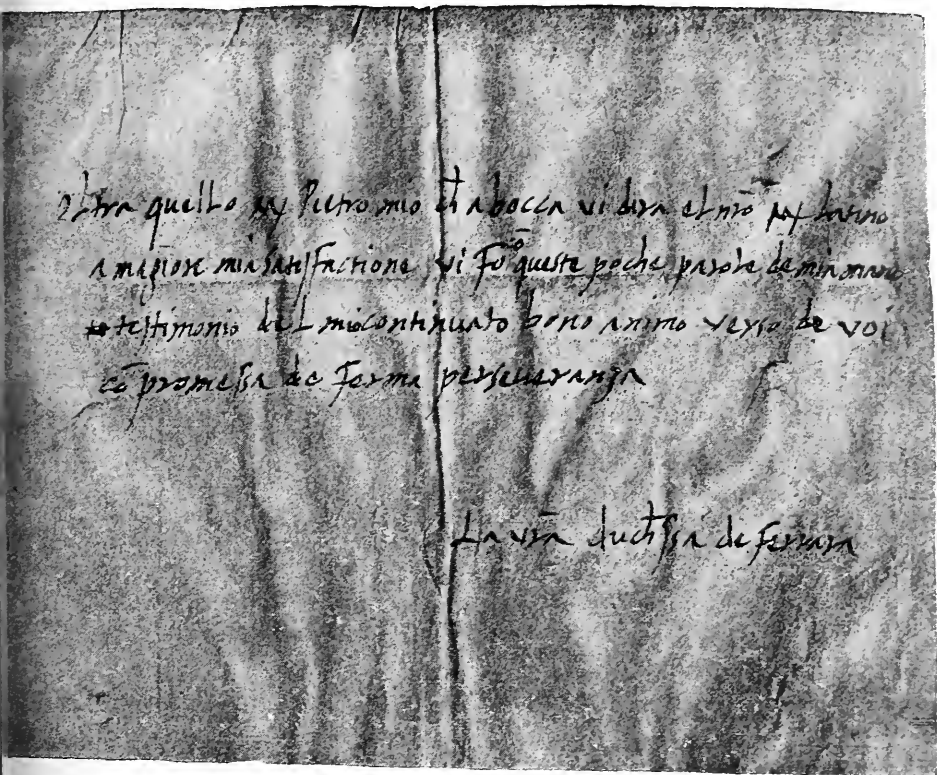 oltra quello Pietro mio ch̄ a bocca vi dira el nr̄o
a magiore mia satisfactione vi fo queste poche parole de mia mano
testimonio del mio continuato bono animo verso de voi
cō promessa de ferma perseueranza
La vr̄a duch̄ssa de ferrara